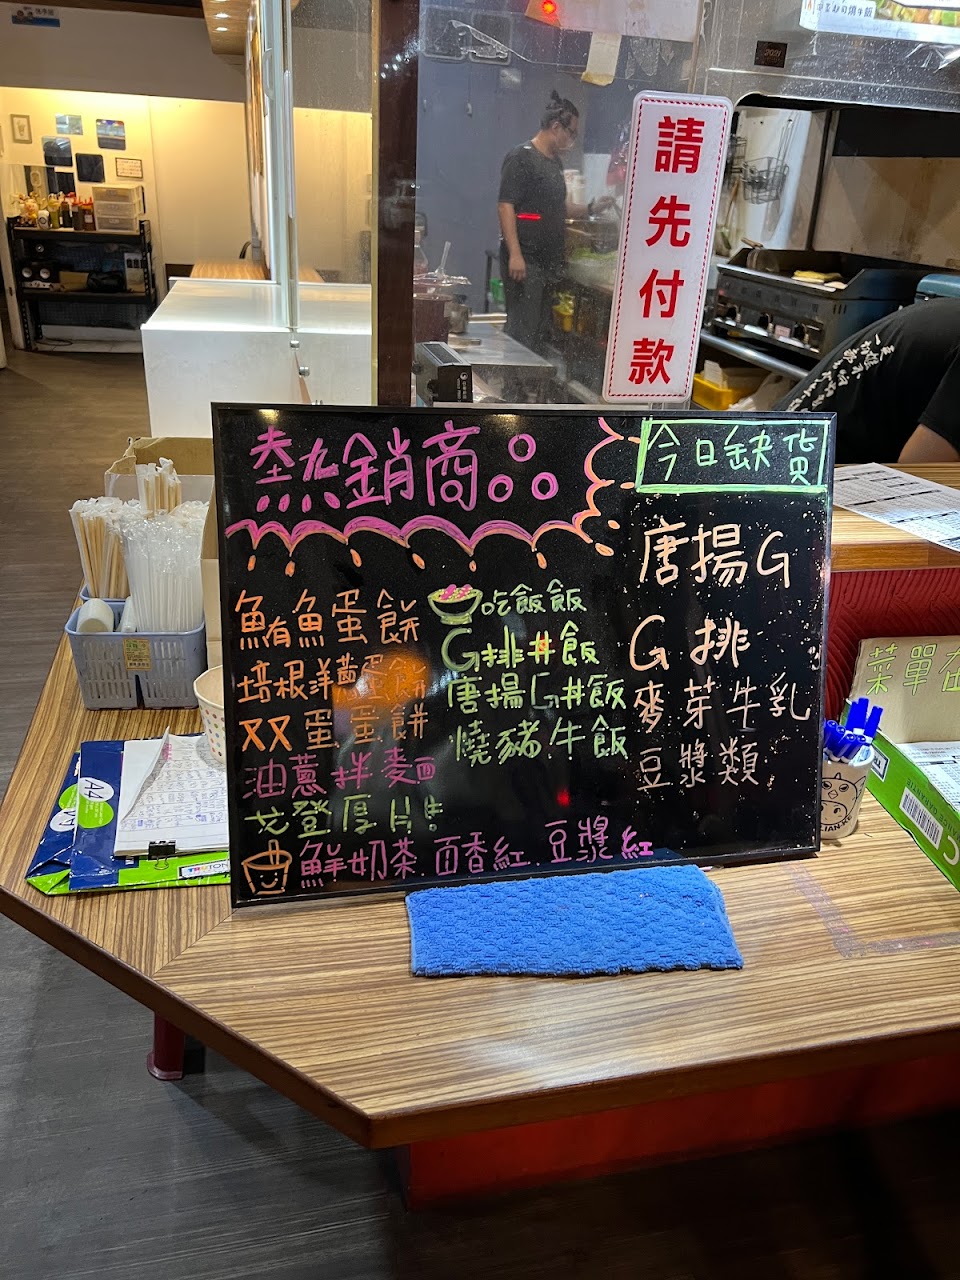 請先付款
熱銷商品
今日缺貨
鮪魚蛋餅
培根洋蔥蛋餅
双蛋蛋餅
油蔥拌麵
戈登厚片
鮮奶茶.面香紅.豆漿紅
吃飯飯
G排丼飯
唐揚G丼飯
燒豬牛飯
唐揚G
G排
麥芽牛乳
豆漿類
菜單在
A4